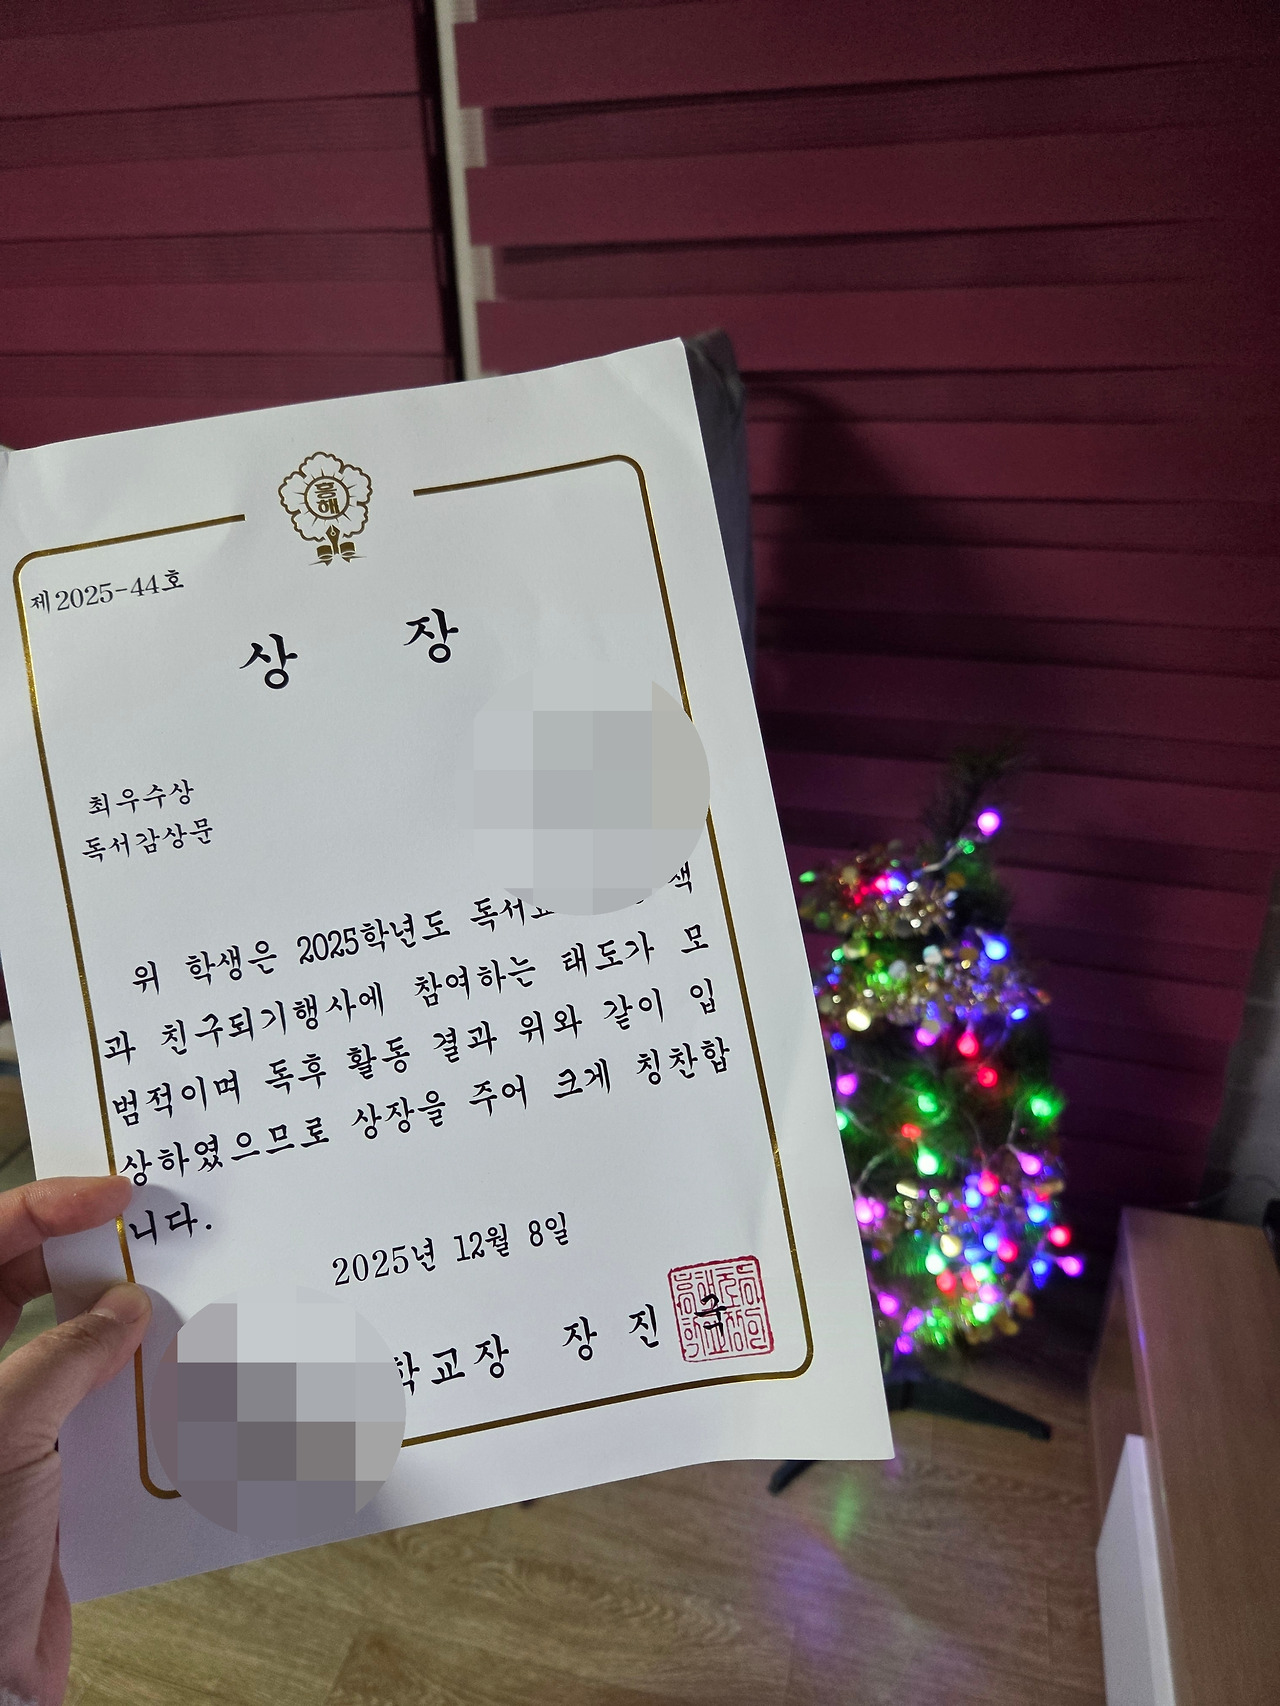 흥해
제2025-44호
상 장
최우수상
독서감상문
위 학생은 2025학년도 독서 색
과 친구되기행사에 참여하는 태도가 모
범적이며 독후 활동 결과 위와 같이 입
상하였으므로 상장을 주어 크게 칭찬합
니다.
2025년 12월 8일
학교장 장 진